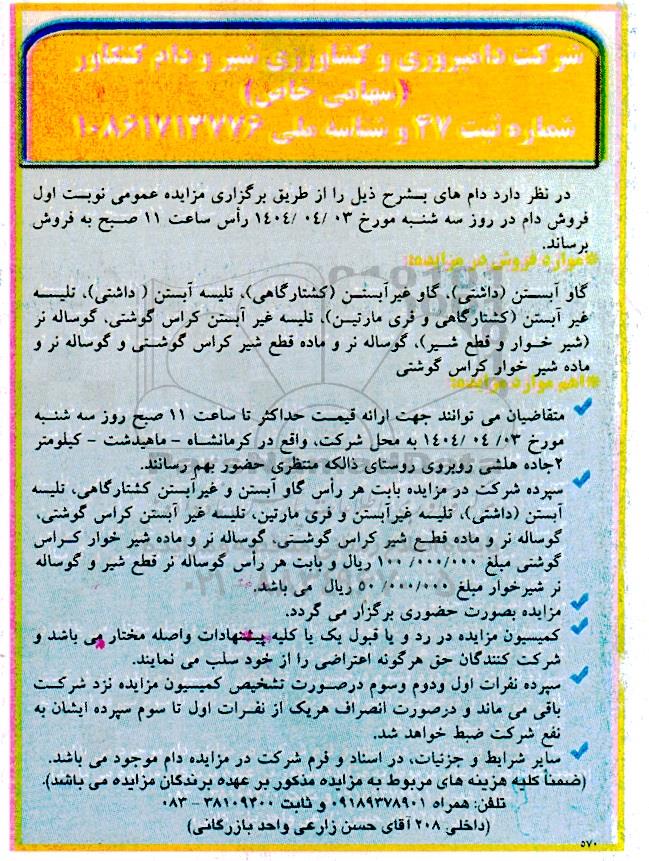 شرکت دامپروری و کشاورزی شیر و دام کنگاور
(سهامی خاص)
شماره ثبت ۴۷ و شناسه ملی ۱۰۸۶۱۷۱۳۷۷۶
در نظر دارد دام های بشرح ذیل را از طریق برگزاری مزایده عمومی نوبت اول
فروش دام در روز سه شنبه مورخ ۰۳ /۰۴ /۱۴۰۴ رأس ساعت ۱۱ صبح به فروش
برساند.
*موارد فروش در مزایده:
گاو آبستن (داشتی)، گاو غیرآبستن (کشتارگاهی)، تلیسه آبستن ( داشتی)، تلیسه
غیر آبستن (کشتارگاهی و فری مارتین)، تلیسه غیر آبستن کراس گوشتی، گوساله نر
(شیر خوار و قطع شیر)، گوساله نر و ماده قطع شیر کراس گوشتی و گوساله نر و
ماده شیر خوار کراس گوشتی
*اهم موارد مزایده:
✔ متقاضیان می توانند جهت ارائه قیمت حداکثر تا ساعت ۱۱ صبح روز سه شنبه
مورخ ۰۳/ ۰۴ /۱۴۰۴ به محل شرکت، واقع در کرمانشاه - ماهیدشت - کیلومتر
۲جاده هلشی روبروی روستای ذالکه منتظری حضور بهم رسانند.
✔ سپرده شرکت در مزایده بابت هر رأس گاو آبستن و غیرآبستن کشتارگاهی، تلیسه
آبستن (داشتی)، تلیسه غیرآبستن و فری مارتین، تلیسه غیر آبستن کراس گوشتی،
گوساله نر و ماده قطع شیر کراس گوشتی، گوساله نر و ماده شیر خوار کراس
گوشتی مبلغ ۱۰۰/۰۰۰/۰۰۰ ریال و بابت هر رأس گوساله نر قطع شیر و گوساله
نر شیرخوار مبلغ ۵۰/۰۰۰/۰۰۰ ریال می باشد.
✔ مزایده بصورت حضوری برگزار می گردد.
✔ کمیسیون مزایده در رد و یا قبول یک یا کلیه پیشنهادات واصله مختار می باشد و
شرکت کنندگان حق هرگونه اعتراضی را از خود سلب می نمایند.
✔ سپرده نفرات اول ودوم وسوم درصورت تشخیص کمیسیون مزایده نزد شرکت
باقی می ماند و درصورت انصراف هریک از نفرات اول تا سوم سپرده ایشان به
نفع شرکت ضبط خواهد شد.
✔ سایر شرایط و جزئیات، در اسناد و فرم شرکت در مزایده دام موجود می باشد.
(ضمناً کلیه هزینه های مربوط به مزایده مذکور بر عهده برندگان مزایده می باشد).
تلفن: همراه ۰۹۱۸۹۳۷۸۹۰۱ و ثابت ۳۸۱۰۹۲۰۰ - ۰۸۳
(داخلی ۲۰۸ آقای حسن زارعی واحد بازرگانی)
۵۷۰